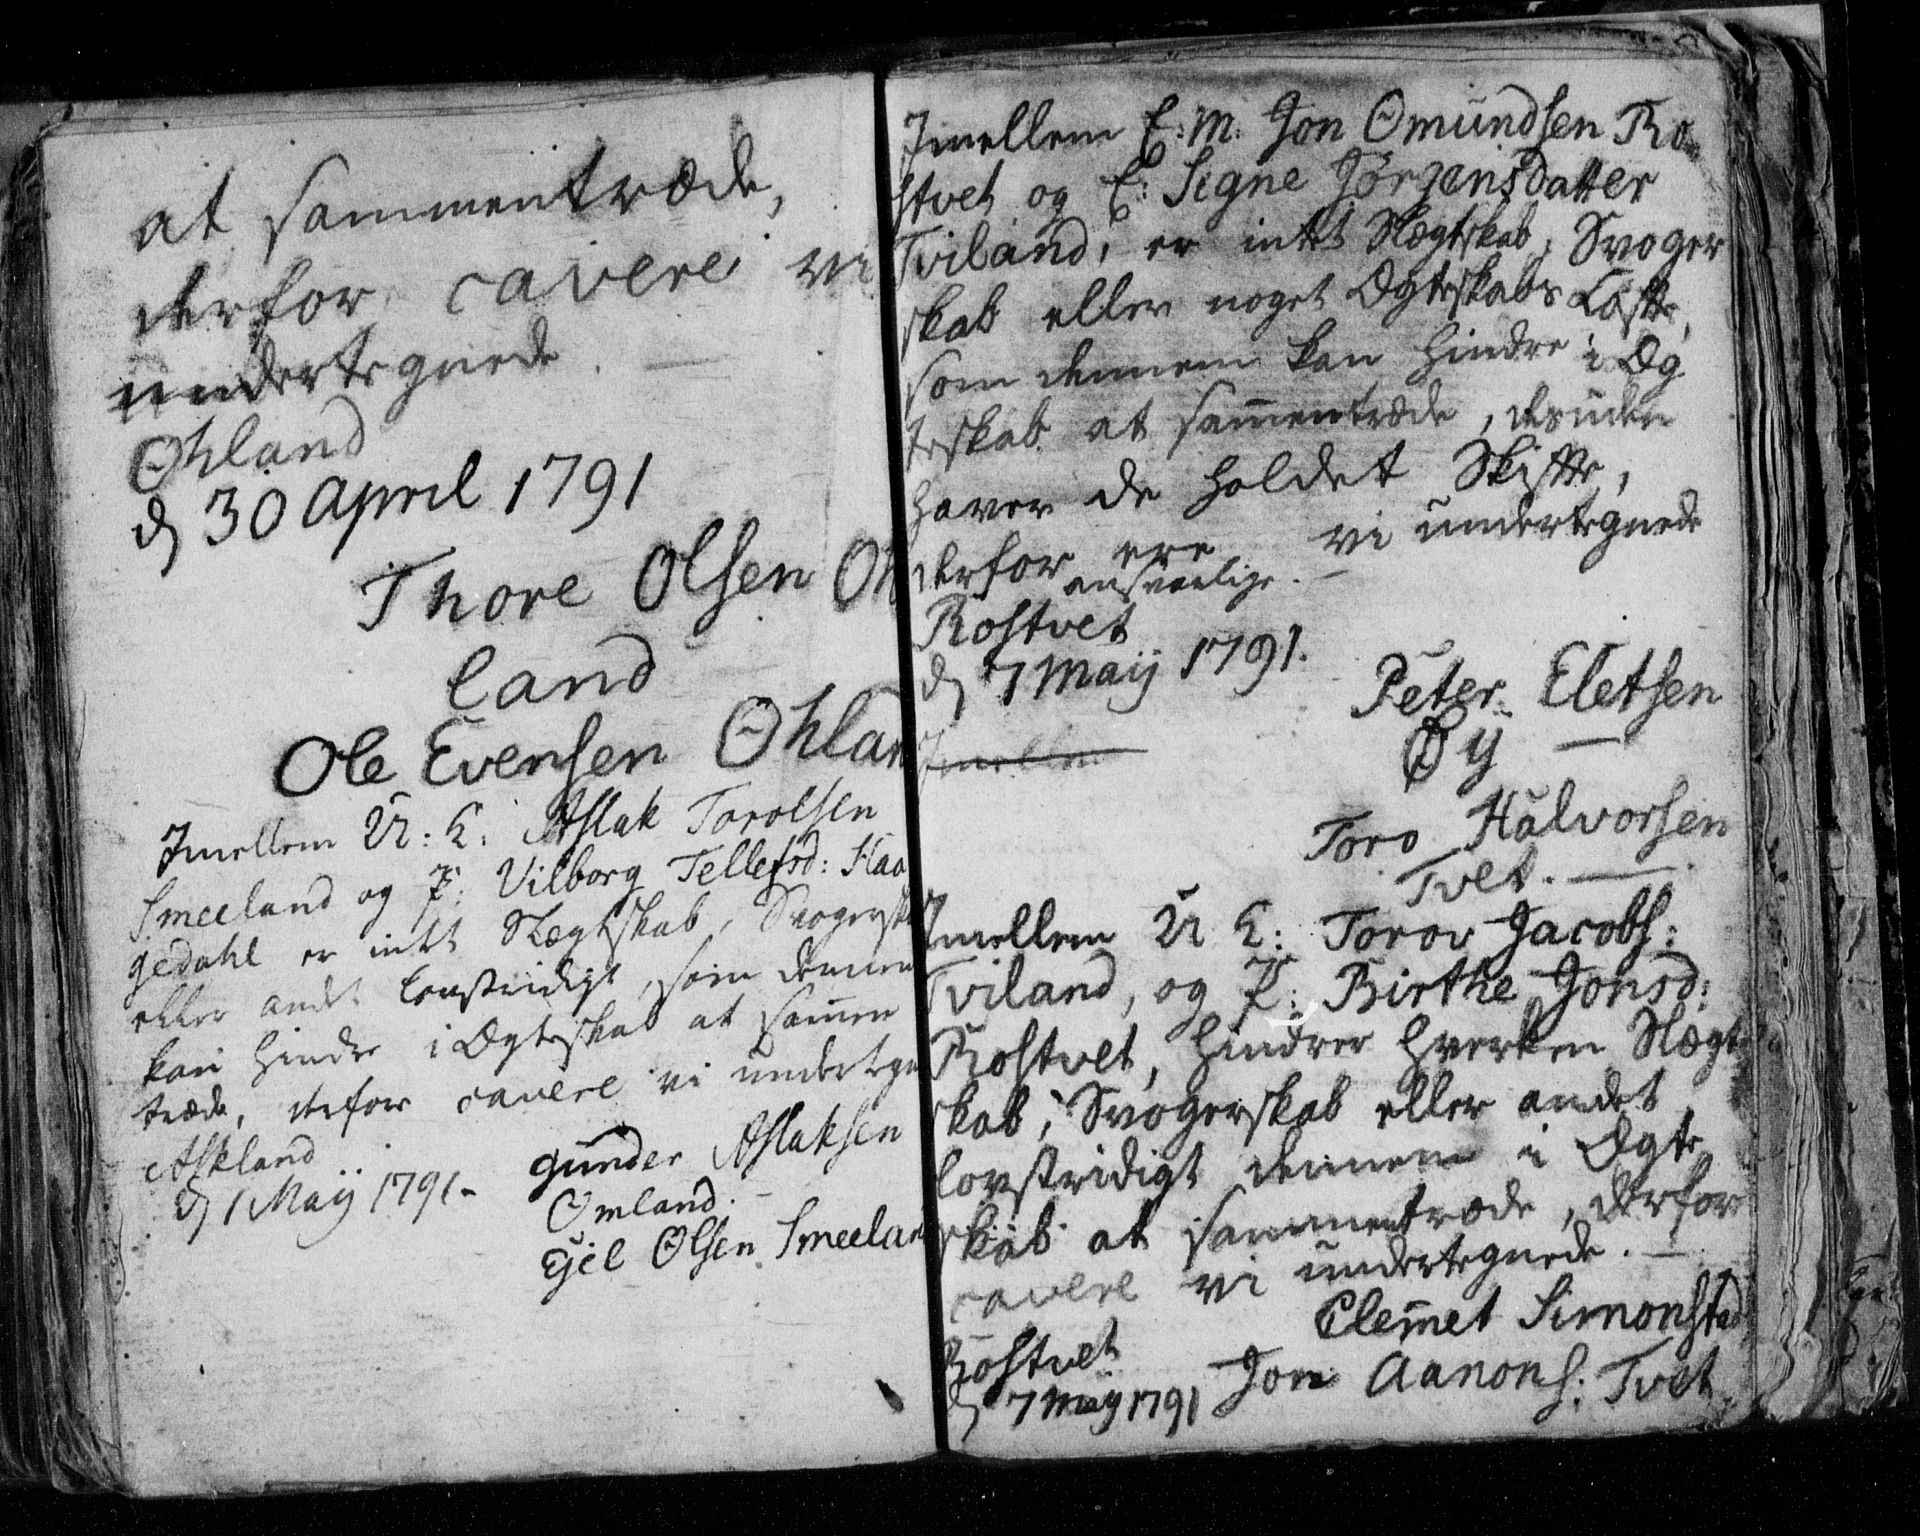 at sammentræde,
derfor cavere vi
undertegnede
Ohland
d 30 April 1791
Thore Olsen Oh
land
Ole Evensen Ohlan
Imellem U: K: Aslak Torolsen
Smeeland og P: Vilborg Tellefsd: Haa
gedahl er intet Slægtskab, Svogersk
eller andet lovstridigt, som dennem
kan hindre i Ægteskab at sam̅en
træde, derfor cavere vi undertegn
Askland
d 1 Maij 1791.
Gunder Aslaksen
Omland.
Ejel Olsen Smeelan
Imellem E: M: Jon Omundsen Ro
stvet og E: Signe Jörgensdatter
Tviland, er intet Slægtskab, Svoger
skab eller noget Ægteskabs Löfte,
som dennem kan hindre i Æg
teskab at sam̅entræde, desuden
haver de holdet Skifte,
derfor ere vi undertegnede
ansvarlige.
Rostvet
d 7 Maij 1791.
Peter Eletsen
Øij
Imellem
Toro Halvorsen
Tvet.
Imellem U K: Torov Jacobs:
Tviland, og P: Birthe Jonsd:
Rostvet, hindrer hverken Slægt
skab, Svogerskab eller andet
lovstridigt dennem i Ægte
skab at sammentræde, derfor
cavere vi undertegnede.
Clem̅et Simonstad
Rostvet
d 7 Maij 1791
Jon Aanons: Tvet